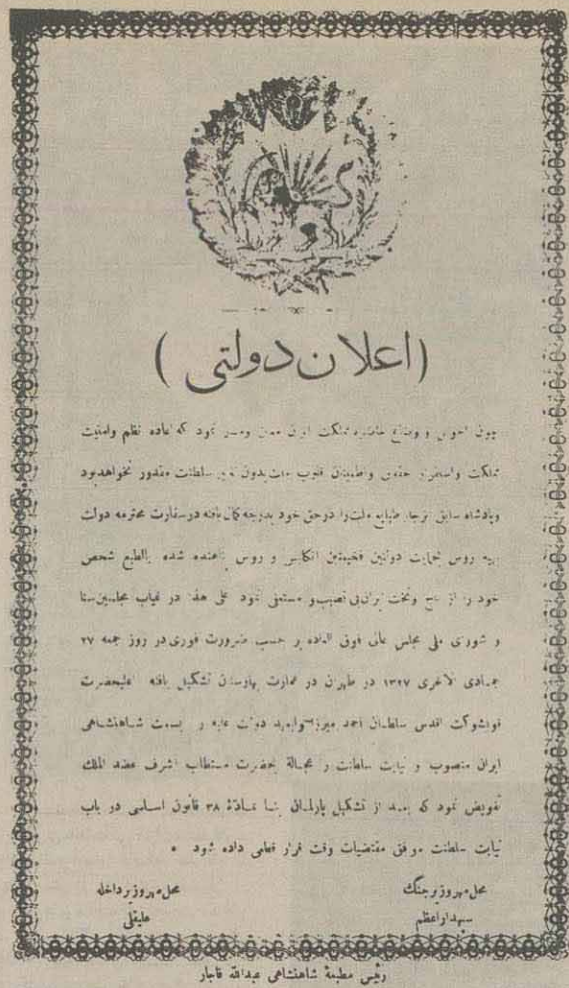 (اعلان دولتی)
چون احوال و وضاع حاضره مملکت ایران نمود که اعاده نظم وامنیت
مملکت واستقرار حقوق واطمینان قلوب ملت بدون سلطنت مقدور نخواهدبود
وپادشاه سابق طبایع ملت را درحق خود بدرجه کمال یافته درسفارت محترمه دولت
بهیه روس بحمایت دولتین فخیمتین انگلیس و روس پناهنده شده بالطبع شخص
خود را از تاج وتخت ایران بی نصیب و مستعفی نمود علی هذا در غیاب مجلسین سنا
و شورای ملی مجلس عالی فوق العاده بر حسب ضرورت فوری در روز جمعه ۲۷
جمادی الاخری ۱۳۲۷ در طهران در عمارت بهارستان تشکیل یافته اعلیحضرت
قویشوکت اقدس سلطان احمد میرزا ولیعهد دولت علیه را بسمت شاهنشاهی
ایران منصوب و نیابت سلطنت را عجالة بحضرت مستطاب اشرف عضد الملک
تفویض نمود که بعد از تشکیل پارلمان بنا بمادۀ ۳۸ قانون اساسی در باب
نیابت سلطنت موافق مقتضیات وقت قرار قطعی داده شود *
محل مهر وزیر جنگ محل مهر وزیر داخله
سپهدار اعظم علیقلی
رئیس مطبعۀ شاهنشاهی عبدالله قاجار